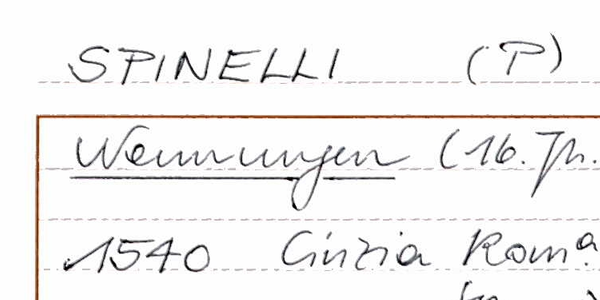 SPINELLI (P)
Nennungen (16. Jh.
1540 Cinzia Romª